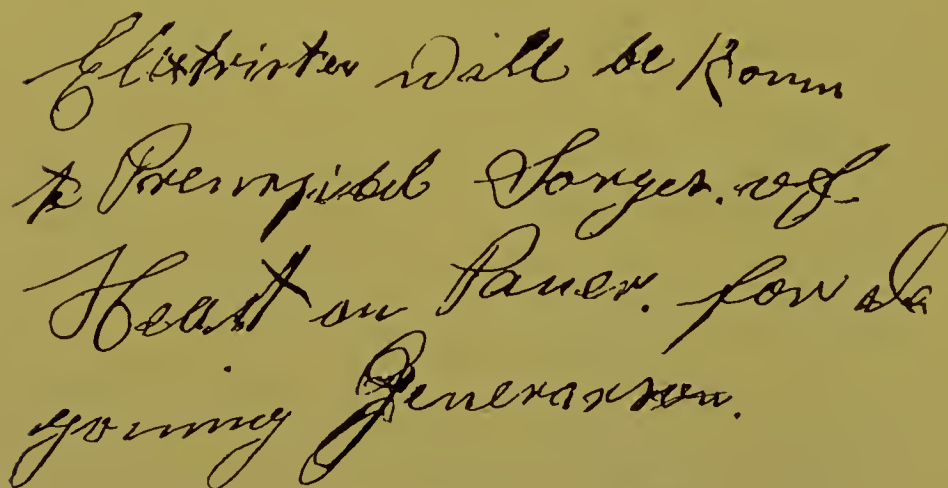 Elixtristen will be Komm
to Prennzibel Sorges. of
Heatt an Pauer. for de
youning Generaxson.